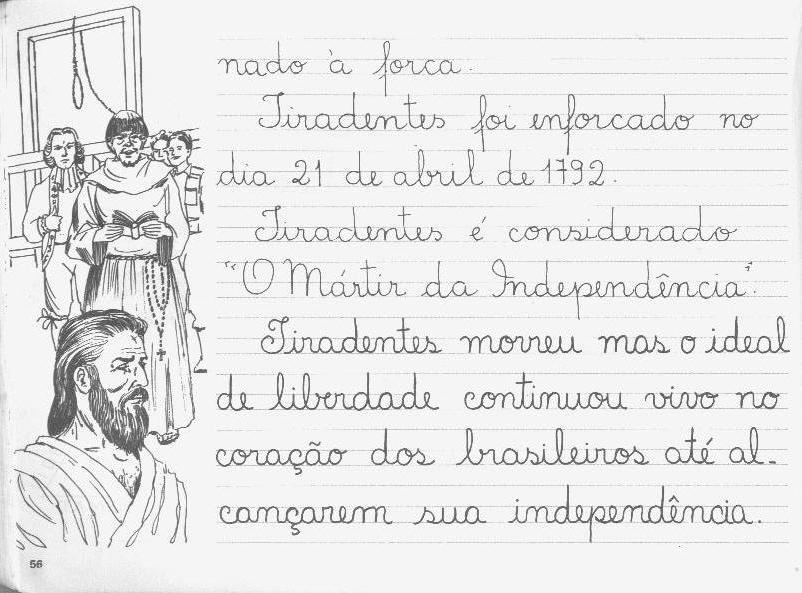 nado à forca.
Tiradentes foi enforcado no
dia 21 de abril de 1792.
Tiradentes é considerado
"O Mártir da Independência".
Tiradentes morreu mas o ideal
de liberdade continuou vivo no
coração dos brasileiros até al-
cançarem sua independência.
56